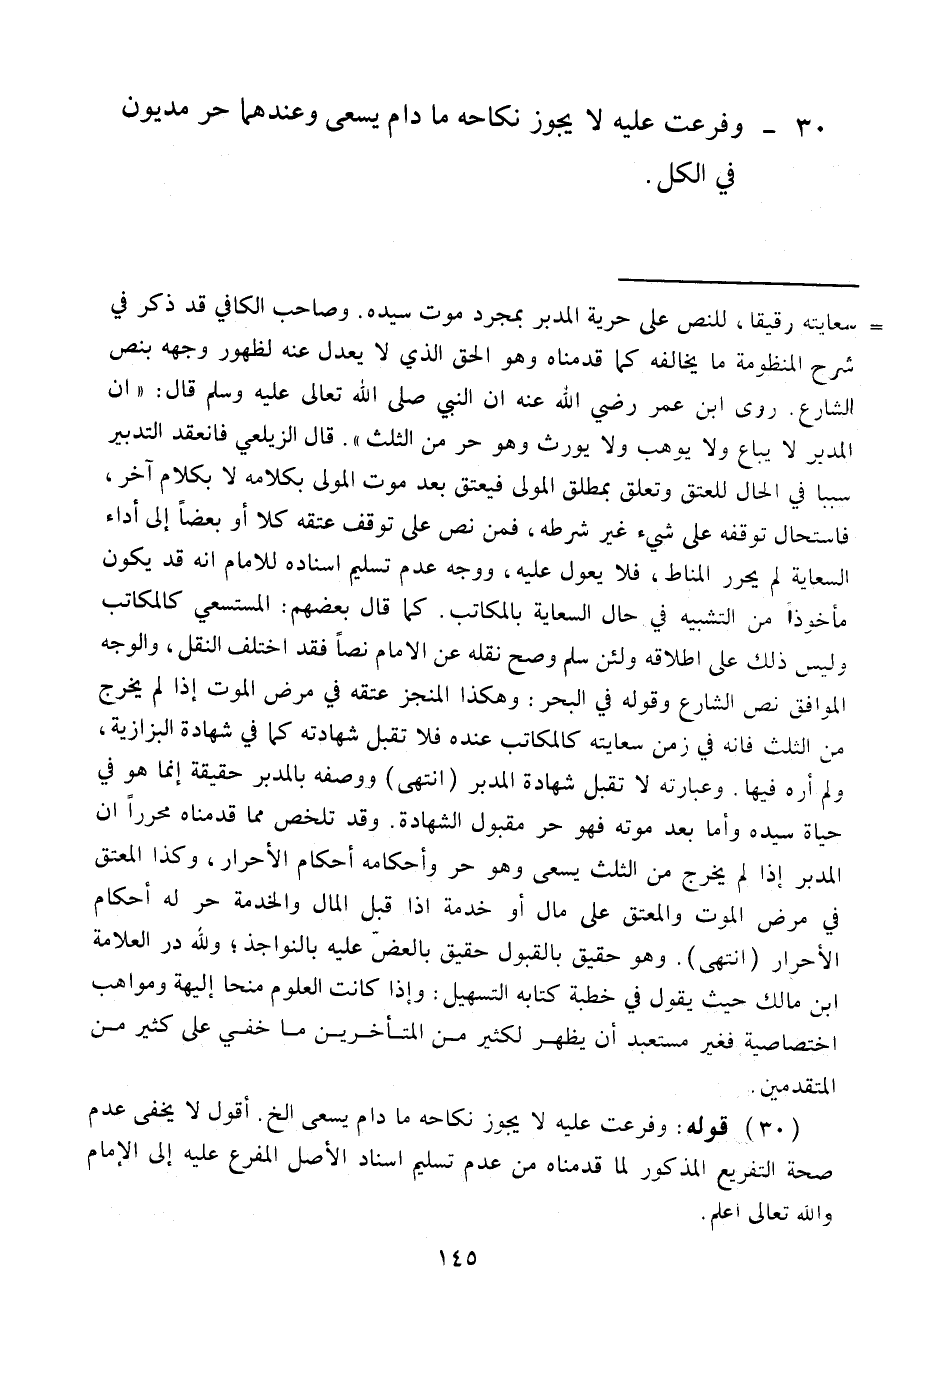 ٣٠ - وفرعت عليه لا يجوز نكاحه ما دام يسعى وعندهما حر مديون
في الكل.
= سعايته رقيقا، للنص على حرية المدبر بمجرد موت سيده. وصاحب الكافي قد ذكر في
شرح المنظومة ما يخالفه كما قدمناه وهو الحق الذي لا يعدل عنه لظهور وجهه بنص
الشارع. روى ابن عمر رضي الله عنه ان النبي صلى الله تعالى عليه وسلم قال: «ان
المدبر لا يباع ولا يوهب ولا يورث وهو حر من الثلث». قال الزيلعي فانعقد التدبير
سببا في الحال للعتق وتعلق بمطلق المولى فيعتق بعد موت المولى بكلامه لا بكلام آخر،
فاستحال توقفه على شيء غير شرطه، فمن نص على توقف عتقه كلا أو بعضاً إلى أداء
السعاية لم يحرر المناط، فلا يعول عليه، ووجه عدم تسليم اسناده للامام انه قد يكون
مأخوذاً من التشبيه في حال السعاية بالمكاتب. كما قال بعضهم: المستسعي كالمكاتب
وليس ذلك على اطلاقه ولئن سلم وصح نقله عن الامام نصاً فقد اختلف النقل، والوجه
الموافق نص الشارع وقوله في البحر: وهكذا المنجز عتقه في مرض الموت إذا لم يخرج
من الثلث فانه في زمن سعايته كالمكاتب عنده فلا تقبل شهادته كما في شهادة البزازية،
ولم أره فيها. وعبارته لا تقبل شهادة المدبر (انتهى) ووصفه بالمدبر حقيقة إنما هو في
حياة سيده وأما بعد موته فهو حر مقبول الشهادة. وقد تلخص مما قدمناه محرراً ان
المدبر إذا لم يخرج من الثلث يسعى وهو حر وأحكامه أحكام الأحرار، وكذا المعتق
في مرض الموت والمعتق على مال أو خدمة اذا قبل المال والخدمة حر له أحكام
الأحرار (انتهى). وهو حقيق بالقبول حقيق بالعضّ عليه بالنواجذ؛ ولله در العلامة
ابن مالك حيث يقول في خطبة كتابه التسهيل: وإذا كانت العلوم منحا إليهة ومواهب
اختصاصية فغير مستعبد أن يظهر لكثير من المتأخرين ما خفي على كثير من
المتقدمين.
(٣٠) قوله: وفرعت عليه لا يجوز نكاحه ما دام يسعى الخ. أقول لا يخفى عدم
صحة التفريع المذكور لما قدمناه من عدم تسليم اسناد الأصل المفرع عليه إلى الإمام
والله تعالى أعلم.
١٤٥